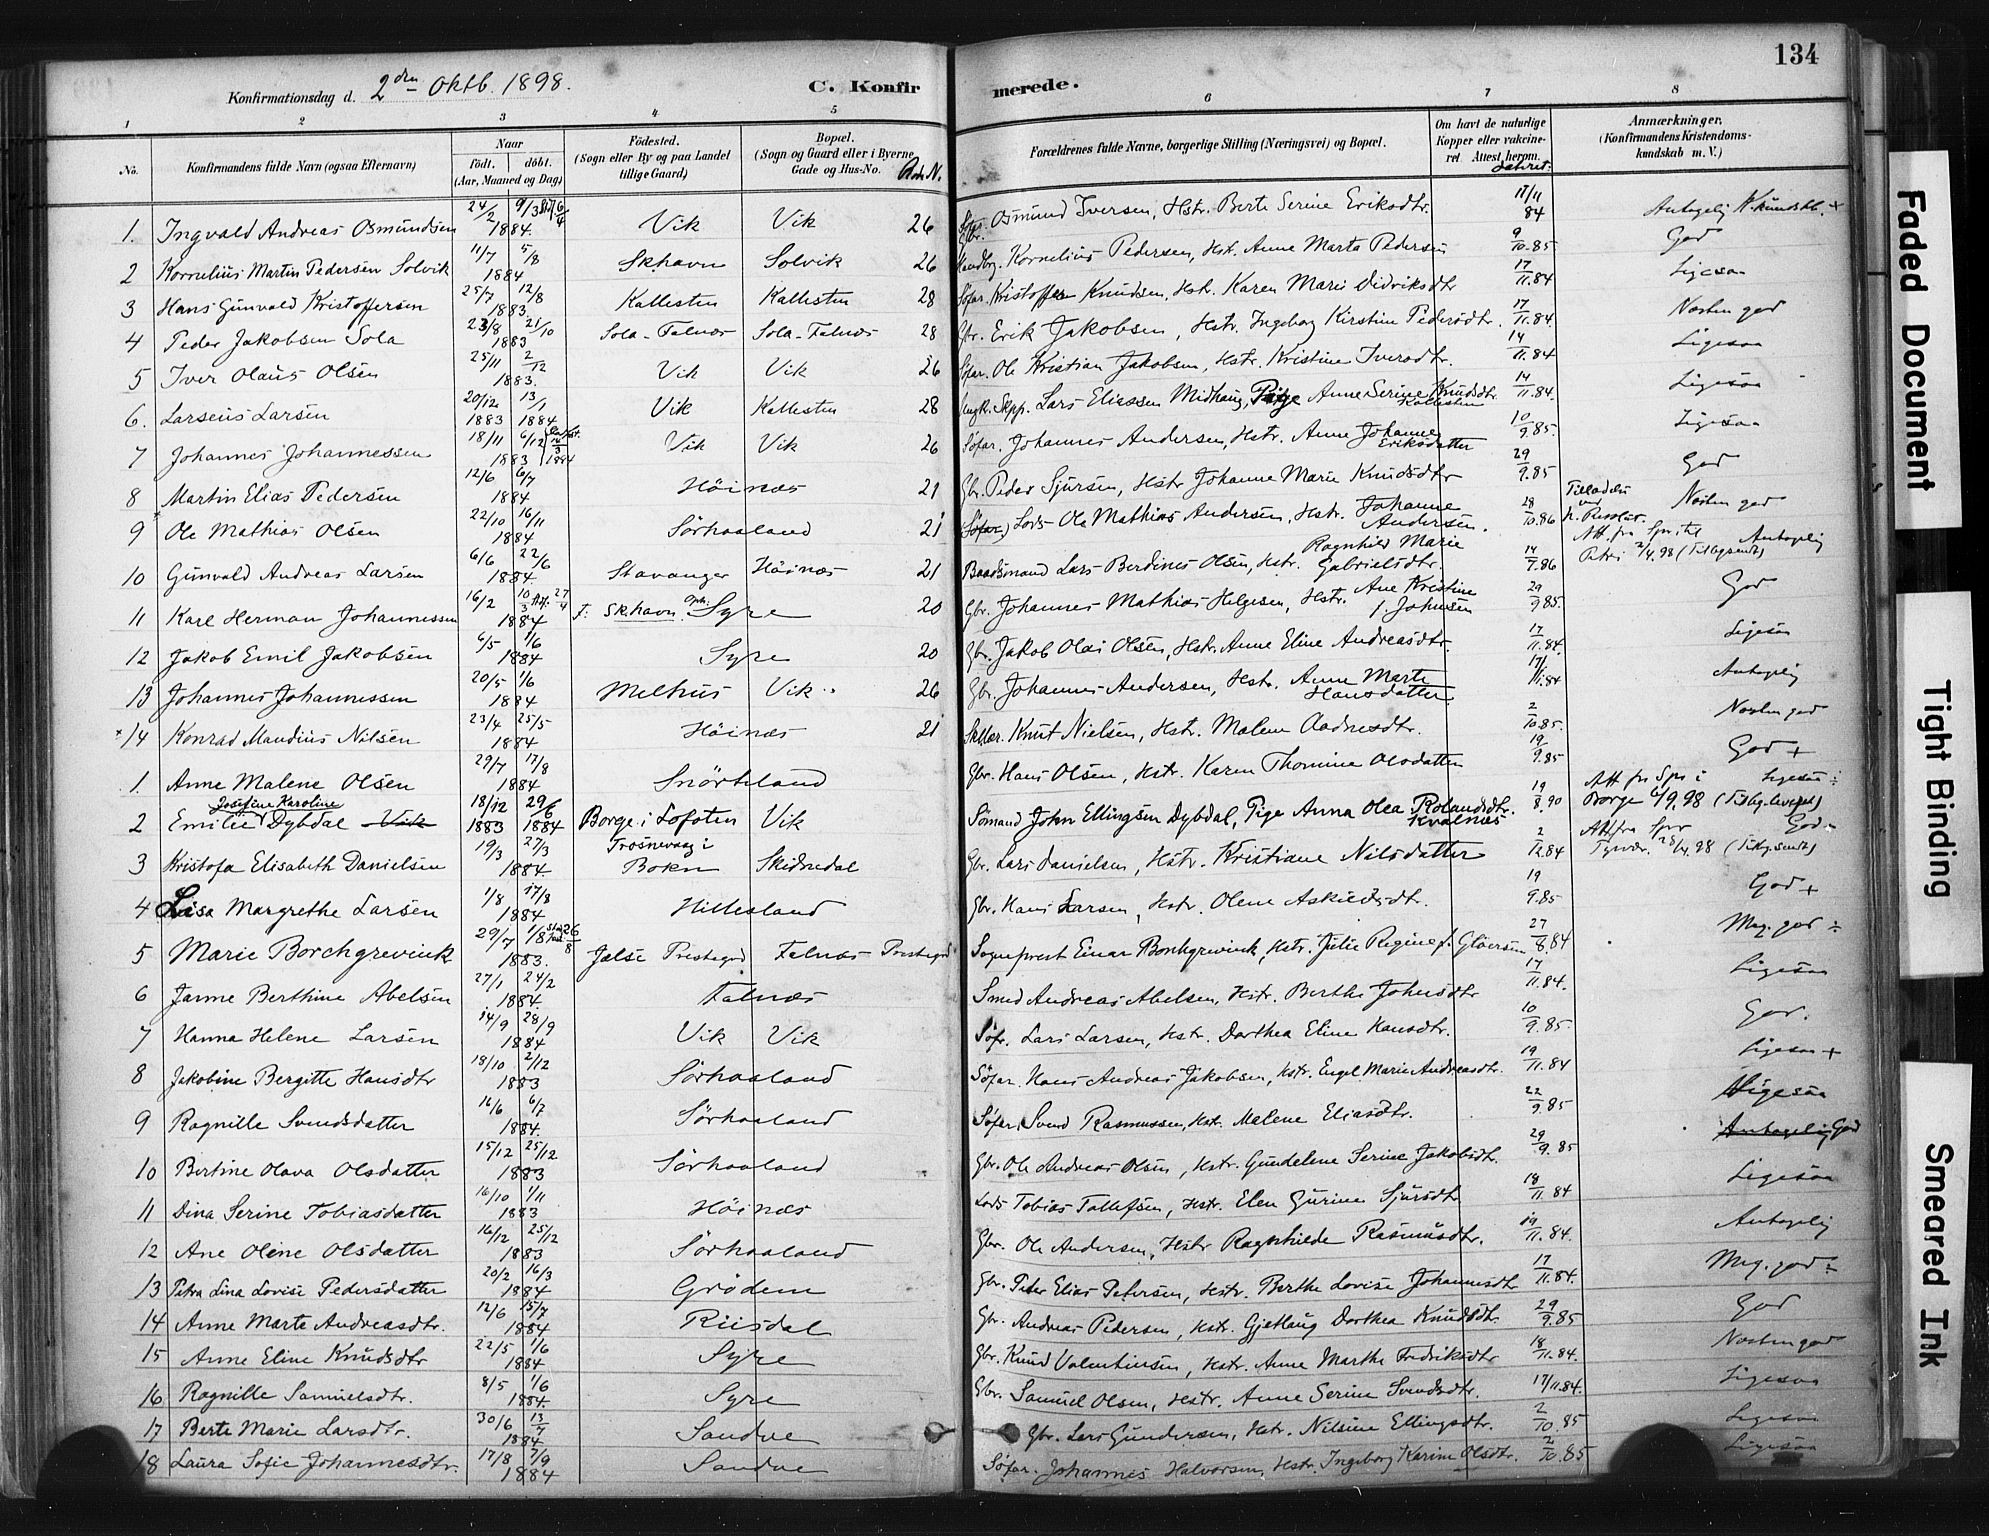 134
Konfirmationsdag d. 2den Oktb. 1898. C. Konfirmerede.
1 2 3 4 5 6 7 8
No. Konfirmandens fulde Navn (ogsaa Efternavn) Naar født. døbt. (Aar, Maaned og Dag) Fødested. (Sogn eller By og paa Landet tillige Gaard) Bopæl. (Sogn og Gaard eller i Byerne Gade og Hus-No. Forældrenes fulde Navne, borgerlige Stilling (Næringsvei) og Bopæl. Om havt de naturlige Kopper eller vakcineret. Attest herom. Anmærkninger. (Konfirmandens Kristendomskundskab m. V.)
1. Ingvald Andreas Osmundsen 24/2 9/3 1884. Vik Vik 26 Gbr. Osmund Iversen, Hstr. Berte Serine Eriksdtr. 17/11 84 Antagelig
2 Kornelius Martin Pedersen Solvik 11/7 5/8 1884 Skhavn Solvik 26 Kornelius Pedersen, Hstr. Anne Marta Pedersen 9/10.85 God
3 Hans Gunvald Kristoffersen 25/7 12/8 1883. Kallesten Kallesten 28 Søfar. Kristoffer Knudsen, Hstr. Karen Marie Didriksdtr 17/11.84 Ligesaa
4 Peder Jakobsen Sola 23/8 21/10 1883 Sola-Falnæs Sola-Falnæs 28 Gbr. Erik Jakobsen, Hstr. Ingeborg Kirstine Pedersdtr. 17/11.84. Næsten god
5 Iver Olaus Olsen 25/11 2/12 1883. Vik Vik 26 Søfar. Ole Kristian Jakobsen, Hstr. Kristine Iversdtr. 14/11.84 Ligesaa
6. Larseus Larsen 20/12 13/1 1883 1884 Vik Kallesten 28 Ungk. Skpp. Lars Eliassen Midhaug, Pige Anne Serine Knudsdtr. Kallesten 14/11.84. Ligesaa
7 Johannes Johannessen 18/11 6/12 1883 1884 Vik Vik 26 Søfar. Johannes Andersen, Hstr. Anne Johanne Eriksdatter 10/9.85. Ligesaa
8 Martin Elias Pedersen 12/6 6/7 1884 Høinæs 21 Gbr. Peder Sjursen, Hstr Johanne Marie Knudsdtr 29/9.85 God
9 Ole Mathias Olsen 22/10 16/11 1884 Sørhaaland 21 (Søfar) Lods Ole Mathias Andersen, Hstr. Johanne Andersen. 28/10.86 Tilladelse Næsten god
10 Gunvald Andreas Larsen 6/6 22/6 1884. Stavanger Høinæs 21 Baadsmand Lars Berdines Olsen, Hstr. Ragnhild Marie Gabrielsdtr. 14/7.86 Att. fra Spr. til Petri 2/4.98 (Tilbgsendt) Antagelig
11 Karl Herman Johannessen 16/2 10/3 27/4 1884 F. Skhavn Syre 20 Gbr. Johannes Mathias Helgesen, Hstr. Ane Kristine f. Johnsen 29/9 85. God
12 Jakob Emil Jakobsen 6/5 1/6 1884 Syre 20 Gbr. Jakob Olai Olsen, Hstr. Anne Eline Andreasdtr. 17/11.84. Ligesaa
13 Johannes Johannessen 20/5 1/6 1884 Melhus Vik 26 Gbr. Johannes Andersen, Hstr. Anne Marte Hansdatter 17/11.84 Antagelig
14 Konrad Maudius Nilsen 23/4 25/5 1884 Høinæs 21 Knut Nielsen, Hstr. Malene Aadnesdtr. 2/10.85. Næsten god
1. Anne Malene Olsen 29/7 17/8 1884 Snørteland Gbr. Hans Olsen, Hstr. Karen Thomine Olsdatter 19/9.85 God +
2 Emilie Josefine Karoline Dybdal Vik 18/12 29/6 1883 1884 Borge i Lofoten Vik Sømand John Ellingsen Dybdal, Pige Anna Olea Rolandsdtr. Kvalnæs 19/8.90 Att. fra Spr i Borge 6/9.98 Ligesaa
3 Kristofa Elisabeth Danielsen 19/3 27/3 1884. Trosnevaag i Bokn Skidnedal Gbr. Lars Danielsen, Hstr. Kristiane Nilsdatter 2/12.84 Att fra Spr Tysvær. (Tilbg.sendt) God
4 Lisa Margrethe Larsen 1/8 17/8 1884 Hillesland Gbr. Hans Larsen, Hstr. Olene Askildsdtr. 19/9.85 God +
5 Marie Borchgrevink 29/7 1/8 26/8 1883. Jelse Prestegrd Falnæs Prestegrd Sogneprest Einar Borchgrevink, Hstr. Julie Regine f. Gløersen 27/8.84 Meg. god
6 Janne Berthine Abelsen 27/1 24/2 1884 Falnæs Smed Andreas Abelsen, Hstr. Berthe Johnsdtr 17/11.84. Ligesaa
7 Hanna Helene Larsen 14/9 28/9 1884 Vik Vik Søfr. Lars Larsen, Hstr. Dorthea Eline Hansdtr. 10/9.85. God.
8 Jakobine Bergitte Hansdtr 18/10 2/12 1883 Sørhaaland Søfar. Hans Andreas Jakobsen, Hstr. Engel Marie Andreasdtr. 19/11.84 Ligesaa +
9 Ragnille Svendsdatter 16/6 6/7 1884. Sørhaaland Søfar. Svend Rasmussen, Hstr. Malene Eliasdtr. 22/9.85 Ligesaa
10 Bertine Olava Olsdatter 15/12 25/12 1883 Sørhaaland Gbr. Ole Andreas Olsen, Hstr. Gundelene Serine Jakobsdtr. 29/9.85 Antagelig God
11 Dina Serine Tobiasdatter 16/10 1/11 1883 Høinæs Lods Tobias Tollefsen, Hstr. Elen Gurine Sjursdtr 18/11.84 Ligesaa
12 Ane Oline Olsdatter 16/12 25/12 1883 Sørhaaland Gbr. Ole Andersen, Hstr Ragnhilde Rasmusdtr. 19/11.84. Antagelig
13 Petra Lina Lovise Pedersdatter 20/2 16/3 1884 Grødem Gbr. Peter Elias Petersen, Hstr. Berthe Lovise Johannesdtr 17/11.84. Meg. god
14 Anne Marte Andreasdtr. 12/6 15/7 1884 Riisdal Gbr. Andreas Pedersen, Hstr. Gjetlaug Dorthea Knudsdtr 29/9.85 God
15 Anne Eline Knudsdtr 22/5 1/6 1884 Syre Gbr. Knud Valentinsen, Hstr. Anne Marthe Fredriksdtr 18/11.84. Næsten god
16 Ragnille Samuelsdtr. 8/5 1/6 1884. Syre Gbr. Samuel Olsen, Hstr. Anne Serine Svendsdtr. 17/11.84. Ligesaa
17 Berte Marie Larsdtr. 30/6 13/7 1884 Sandve Gbr. Lars Gundersen, Hstr. Nilsine Ellingsdtr. 2/10.85 Ligesaa
18 Laura Sofie Johannesdtr. 17/8 7/9 1884 Sandve Søfar. Johannes Halvorsen, Hstr. Ingeborg Karine Olsdtr. 2/10.85 Ligesaa
Faded Document
Tight Binding
Smeared Ink